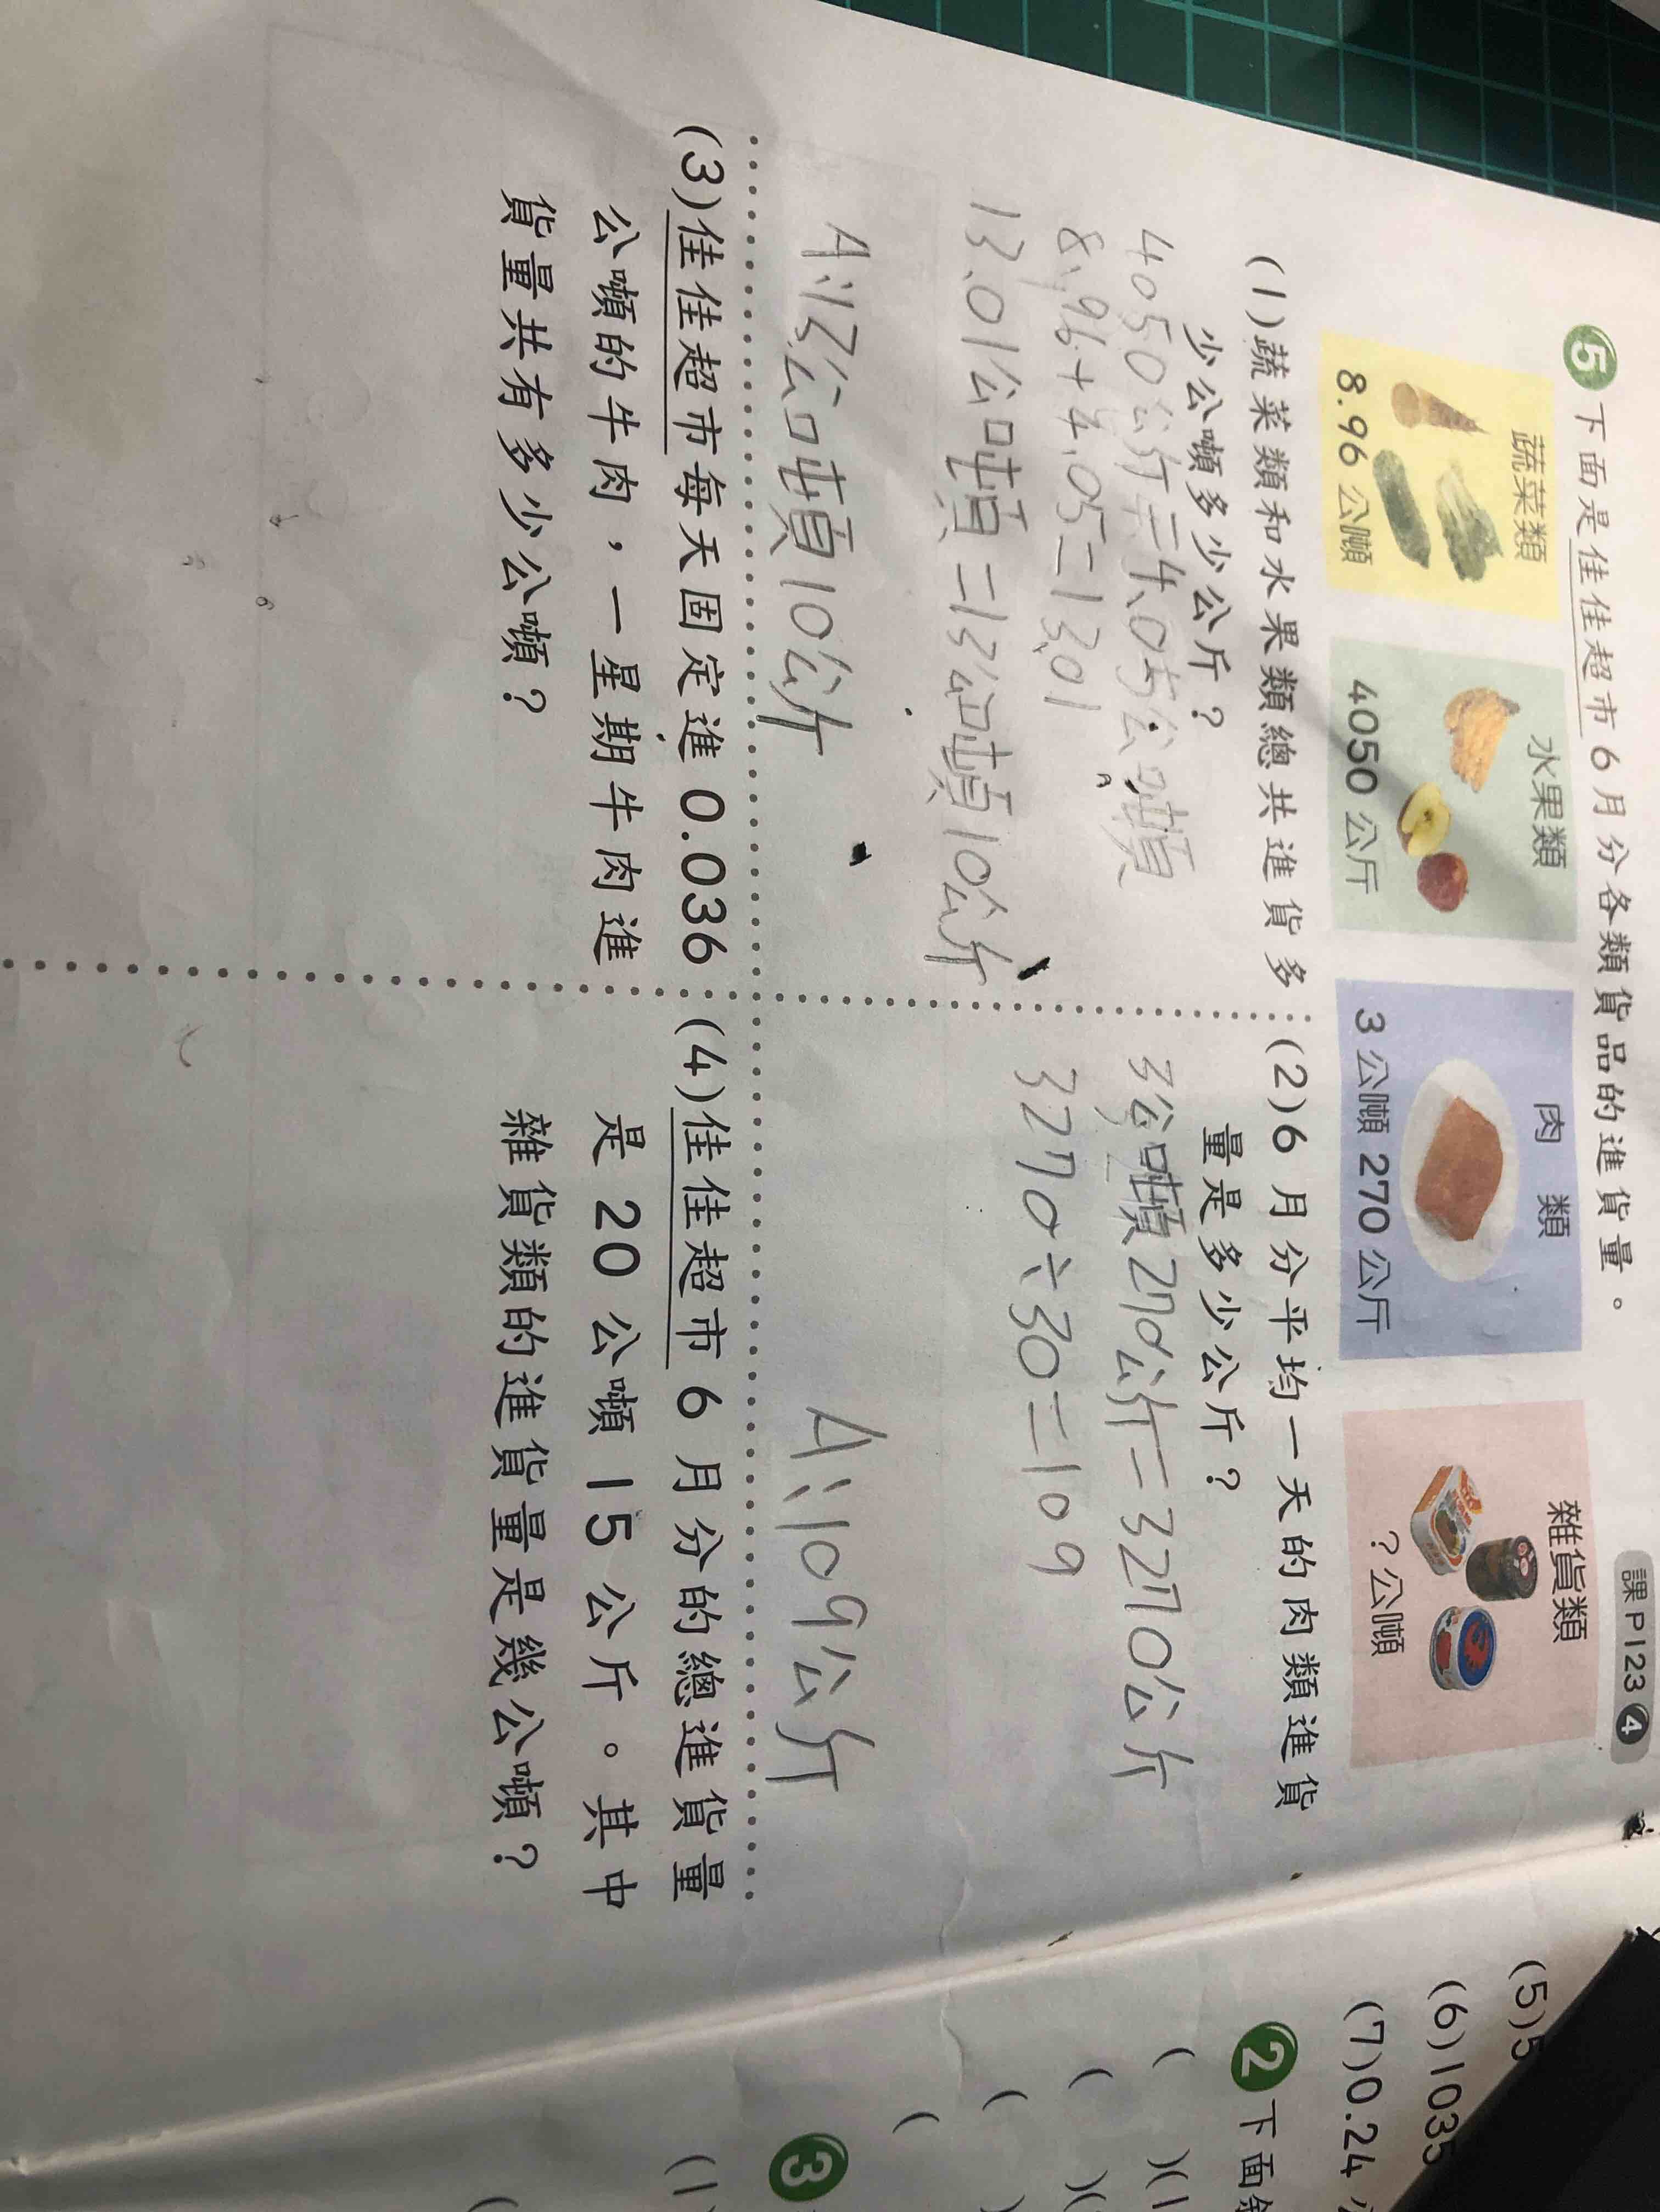 課P123 4
5 下面是佳佳超市6月分各類貨品的進貨量。
蔬菜類
8.96公噸
水果類
4050公斤
肉 類
3公噸270公斤
雜貨類
?公噸
(1)蔬菜類和水果類總共進貨多
少公噸多少公斤?
4050公斤=4.05公噸
8.96+4.05=13.01
13.01公噸=13公噸10公斤
A:13公噸10公斤
(2)6月分平均一天的肉類進貨
量是多少公斤?
3公噸270公斤=3270公斤
3270÷30=109
A:109公斤
(3)佳佳超市每天固定進0.036
公噸的牛肉,一星期牛肉進
貨量共有多少公噸?
(4)佳佳超市6月分的總進貨量
是20公噸15公斤。其中
雜貨類的進貨量是幾公噸?
(5)5
(6)1035
(7)0.24
2 下面
( )(1
( )(
( )
(
3
(1)
(